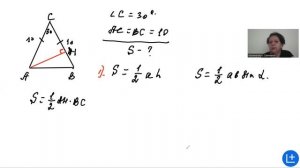 C
30
10
10
H
A
B
∠C = 30°.
AC = BC = 10
S - ?
1) S = 1/2 a h
S = 1/2 ab sin α.
S = 1/2 AH · BC